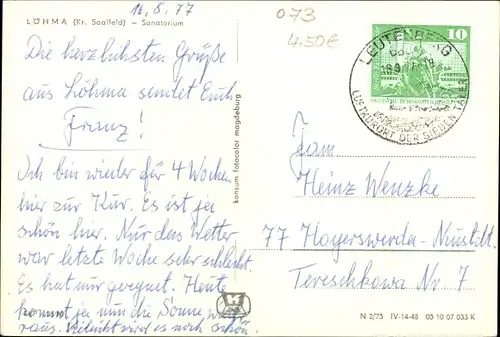 16.8.77
073
4.50€
LÖHMA (Kr. Saalfeld) – Sanatorium
Die herzlichsten Grüße
aus Löhma sendet Euch
Franz!
Ich bin wieder für 4 Wochen
hier zur Kur. Es ist ja
schön hier. Nur das Wetter
war letzte Woche sehr schlecht.
Es hat nur geregnet. Heute
kommt ja nun die Sonne
raus. Vielleicht wird es noch schön.
konsum fotocolor magdeburg
10
LEUTENBERG
LUFTKURORT DER SIEBEN TÄLER
Fam
Heinz Wenzke
77 Hoyerswerda-Neustadt
Tereschkowa Nr. 7
N 2/75 IV-14-48 05 10 07 035 K